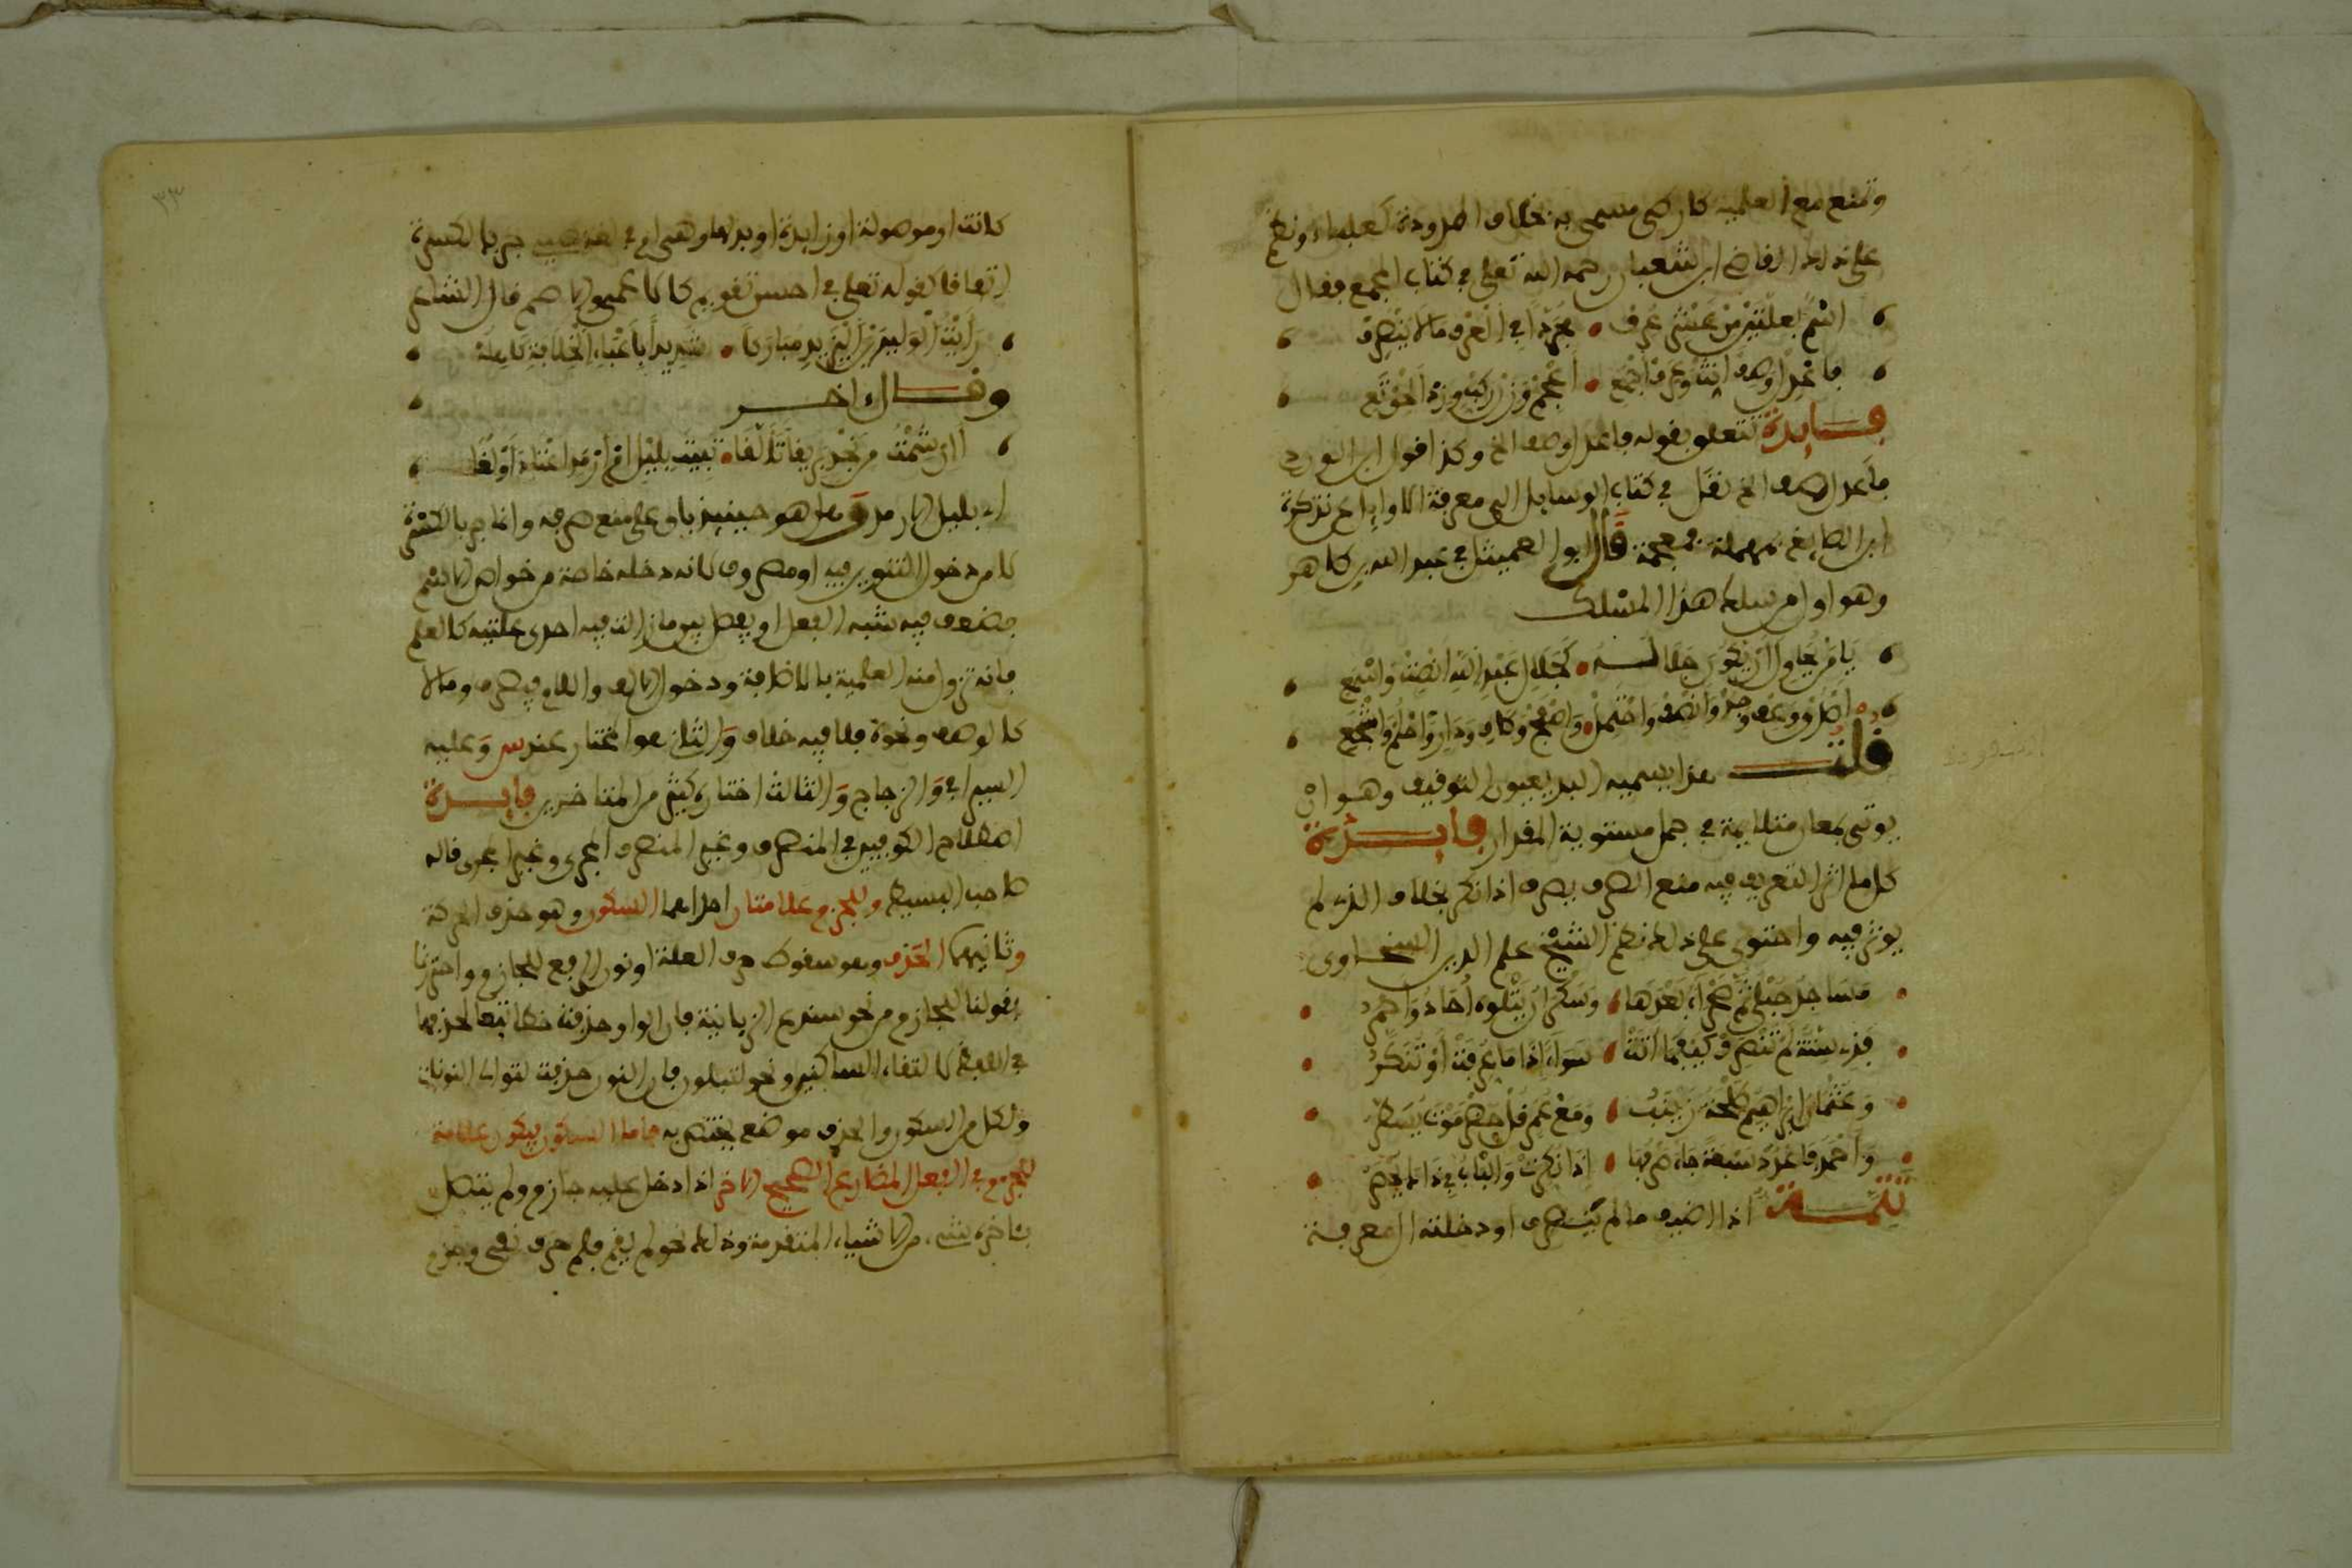 وتمنع مع العلمية كارطى مسمى به بخلاف المدودة كعلباء ونظم
على ذلك القاضى ابن شعبان رحمه الله تعلى في كتاب المجمع فقال
اسم بعلتين من عشر عرف • مجردا في العرف ما لا ينصرف
ما عدل اوصف انث وعرف اجمع • اعجم وزن ركب وزد لخو تع
فايدة تتعلق بقوله ما عدل اوصف الخ وكذا قول ابن الوردي
ما عدل اوصف الخ نقل في كتاب الوسايل الى معرفة الاوايل عن تذكرة
ابن الصايغ بمهملة فمعجمة قال ابو العميثل في عبد الله بن طاهر
وهو اول من سلك هذا المسلك
يا من يحاول ان يكون خلاله • كخلال عبد الله انصت واسمع
اصدق وعف وجد وانصف واحتمل • واصفح وكاف ودار واحلم واشجع
قلت هذا يسميه البديعيون التوفيف وهو ان
يوتى بمعان متلايمة في جمل مستوية المقدار فايدة
كل ما اثر التعريف فيه منع الصرف يصرف اذا نكر بخلاف الذي لم
يوثر فيه واحتوى على ذلك نظم الشيخ علم الدين السخاوي
مساجد حبلى ثم حمراء بعدها • وسكران يتلوه احاد واحمر
فذي ستة لم تنصرف كيفما اتت • سواء اذا ما عرفت او تنكر
وعثمان ابراهيم طلحة زينب • ومع عمر قل حضرموت يسطر
واحمد فاعدد سبعة جاء صرفها • اذا نكرت والباب في ذاك يحصر
تتمة اذا اضيف ما لم ينصرف او دخلته ال معرفة
٣٣
كانت او موصولة او زايدة او بدلها وهى ام في لغة حمير جر بالكسرة
اتفاقا كقوله تعلى في احسن تقويم كالاعمى والاصم قال الشاعر
رايت الوليد بن اليزيد مباركا • شديدا باعباء الخلافة كاهله
وقال اخر
أان شمت من نجد بريقا تألقا • تبيت بليل ام ارمد اعتاد اولقا
اي بليل الارمد وهل هو حينيذ باق على منع صرفه وانما جر بالكسرة
لامن دخول التنوين فيه او مصروف لانه دخله خاصة من خواص الاسم
فضعف فيه شبه الفعل او يفصل بين ما زالت فيه احدى علتيه كالعلم
فانه تزول منه العلمية بالاضافة ودخول الالف واللام فيصرف وما لا
كالوصف ونحوه فلا فيه خلاف والثانى هو المختار عند س وعليه
السيرافي والزجاج والثالث اختاره كثير من المتاخرين فايدة
اصطلاح الكوفيين في المنصرف وغير المنصرف المجرى وغير المجرى قاله
صاحب البسيط وللجزم علامتان احداهما السكون وهو حذف الحركة
وثانيهما الحذف وهو سقوط حرف العلة او نون الرفع للجازم واحترزنا
بقولنا للجازم من نحو سندع الزبانية فان الواو حذفت خطا تبعا لحذفها
في اللفظ لالتقاء الساكنين ونحو لتبلون فان النون حذفت لتوالى النونات
ولكل من السكون والحذف موضع يختص به فاما السكون فيكون علامة
للجزم في الفعل المضارع الصحيح الاخر اذا دخل عليه جازم ولم يتصل
بئاخره شيء من الاشياء المتقدمة وذلك نحو لم يقم فلم حرف نفي وجزم